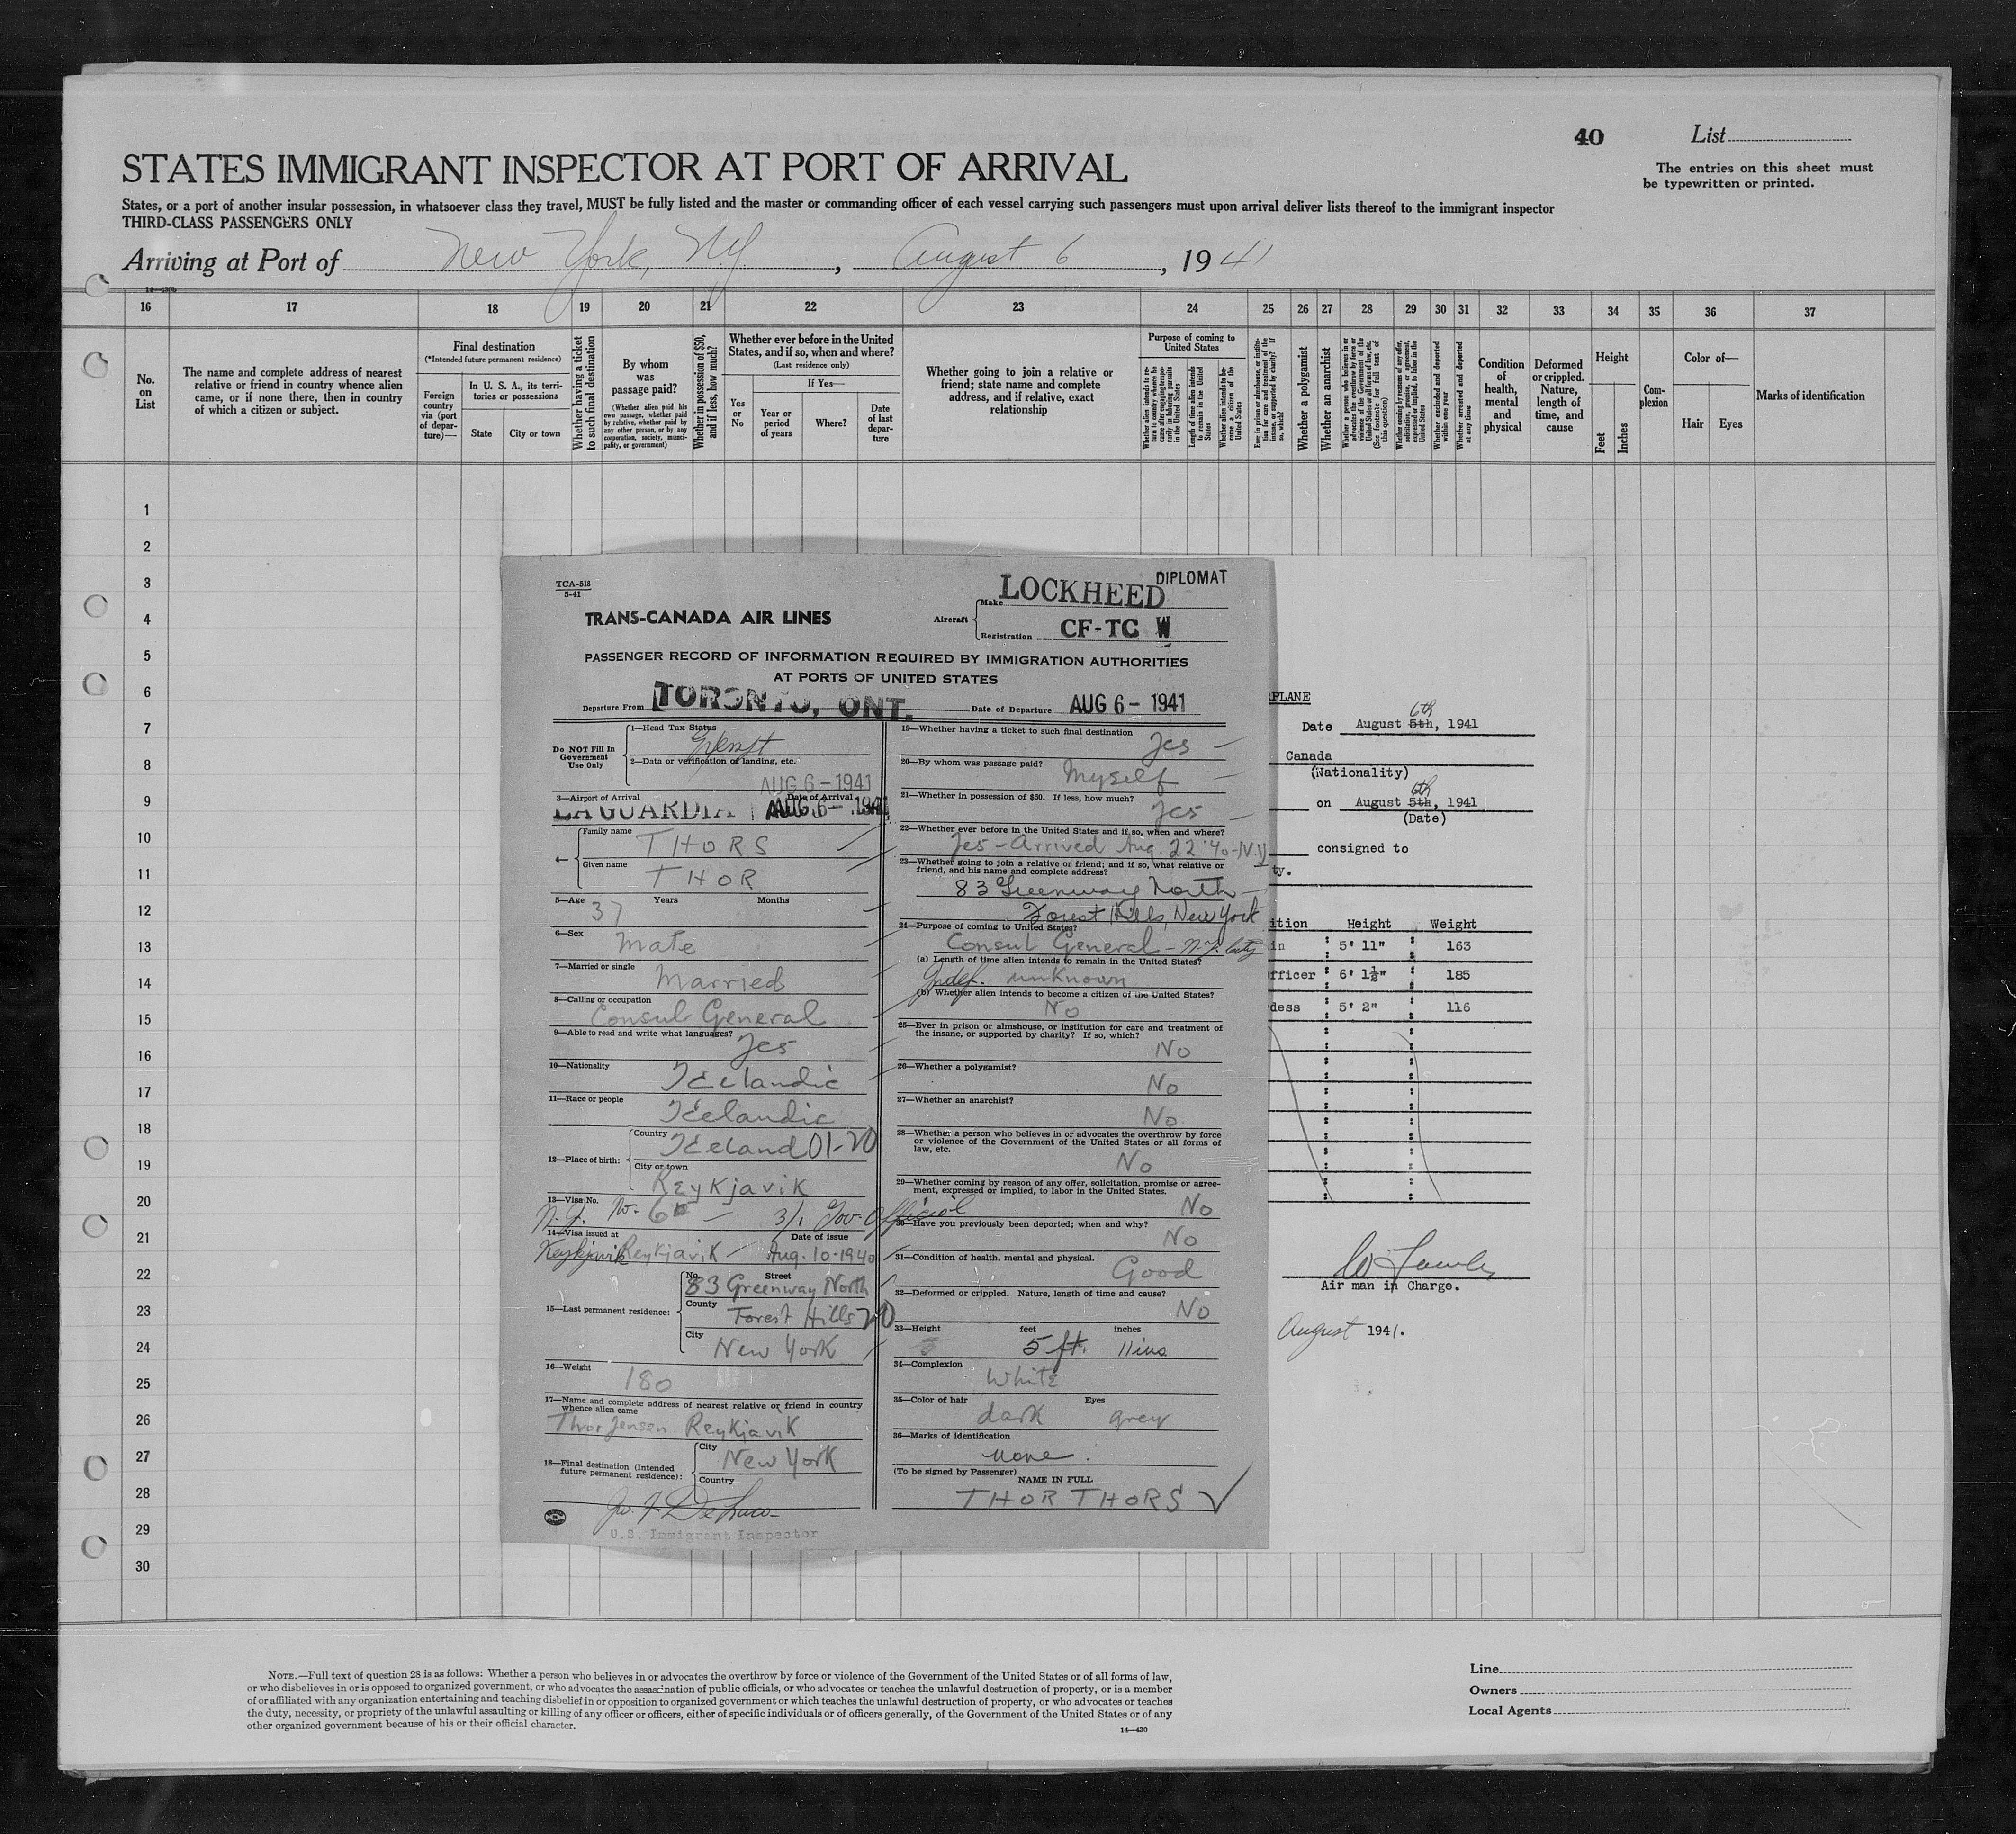 40
List
The entries on this sheet must
be typewritten or printed.
STATES IMMIGRANT INSPECTOR AT PORT OF ARRIVAL
States, or a port of another insular possession, in whatsoever class they travel, MUST be fully listed and the master or commanding officer of each vessel carrying such passengers must upon arrival deliver lists thereof to the immigrant inspector
THIRD-CLASS PASSENGERS ONLY
Arriving at Port of New York, N.Y. , August 6, 1941
16 17 18 19 20 21 22 23 24 25 26 27 28 29 30 31 32 33 34 35 36 37
No. on List
The name and complete address of nearest
relative or friend in country whence alien
came, or if none there, then in country
of which a citizen or subject.
Final destination
(*Intended future permanent residence)
Foreign country via (port of departure)—
In U. S. A., its territories or possessions
State
City or town
Whether having a ticket to such final destination
By whom was passage paid?
(Whether alien paid his own passage, whether paid by relative, whether paid by any other person, or by any corporation, society, municipality, or government)
Whether in possession of $50, and if less, how much?
Whether ever before in the United
States, and if so, when and where?
(Last residence only)
Yes or No
If Yes—
Year or period of years
Where?
Date of last departure
Whether going to join a relative or
friend; state name and complete
address, and if relative, exact
relationship
Purpose of coming to United States
Whether alien intends to return to country whence he came after engaging temporarily in laboring pursuits in the United States
Length of time alien intends to remain in the United States
Whether alien intends to become a citizen of the United States
Ever in prison or almshouse, or institution for care and treatment of the insane, or supported by charity? If so, which?
Whether a polygamist
Whether an anarchist
Whether a person who believes in or advocates the overthrow by force or violence of the Government of the United States or all forms of law, etc. (See footnote for full text of this question)
Whether coming by reason of any offer, solicitation, promise, or agreement, expressed or implied, to labor in the United States
Whether excluded and deported within one year
Whether arrested and deported at any time
Condition of health, mental and physical
Deformed or crippled. Nature, length of time, and cause
Height
Feet
Inches
Complexion
Color of—
Hair
Eyes
Marks of identification
1
2
3
4
5
6
7
8
9
10
11
12
13
14
15
16
17
18
19
20
21
22
23
24
25
26
27
28
29
30
TCA-518
5-41
TRANS-CANADA AIR LINES
DIPLOMAT
Aircraft
Make LOCKHEED
Registration CF-TC W
PASSENGER RECORD OF INFORMATION REQUIRED BY IMMIGRATION AUTHORITIES
AT PORTS OF UNITED STATES
Departure From TORONTO, ONT. Date of Departure AUG 6 - 1941
Do NOT Fill In
Government
Use Only
1—Head Tax Status
2—Data or verification of landing, etc.
AUG 6 - 1941
3—Airport of Arrival Date of Arrival
LA GUARDIA AUG 6 - 1941
4— Family name THORS
Given name THOR
5—Age 37 Years Months
6—Sex Male
7—Married or single Married
8—Calling or occupation
Consul General
9—Able to read and write what languages?
Yes
10—Nationality Icelandic
11—Race or people
Icelandic
12—Place of birth: Country Iceland 01-20
City or town
Reykjavik
13—Visa No. No. 6 3/1 Gov. Official
14—Visa issued at Date of issue
Reykjavik Reykjavik Aug. 10-1940
15—Last permanent residence: No. Street
83 Greenway North
County Forest Hills 20
City New York
16—Weight 180
17—Name and complete address of nearest relative or friend in country
whence alien came
Thor Jensen Reykjavik
18—Final destination (Intended
future permanent residence):
City New York
Country
U.S. Immigrant Inspector
19—Whether having a ticket to such final destination
Yes
20—By whom was passage paid?
Myself
21—Whether in possession of $50. If less, how much?
Yes
22—Whether ever before in the United States and if so, when and where?
Yes - Arrived Aug. 22 '40 - N.Y
23—Whether going to join a relative or friend; and if so, what relative or
friend, and his name and complete address?
83 Greenway North
Forest Hills, New York
24—Purpose of coming to United States?
Consul General - N.Y. City
(a) Length of time alien intends to remain in the United States?
Indef. unknown
(b) Whether alien intends to become a citizen of the United States?
No
25—Ever in prison or almshouse, or institution for care and treatment of
the insane, or supported by charity? If so, which?
No
26—Whether a polygamist?
No
27—Whether an anarchist?
No
28—Whether a person who believes in or advocates the overthrow by force
or violence of the Government of the United States or all forms of
law, etc.
No
29—Whether coming by reason of any offer, solicitation, promise or agree-
ment, expressed or implied, to labor in the United States.
No
30—Have you previously been deported; when and why?
No
31—Condition of health, mental and physical.
Good
32—Deformed or crippled. Nature, length of time and cause?
No
33—Height feet inches
5 ft. 11 ins
34—Complexion
White
35—Color of hair Eyes
dark grey
36—Marks of identification
none.
(To be signed by Passenger)
NAME IN FULL
THOR THORS
PLANE
Date August 5th, 1941
6th
Canada
(Nationality)
on August 5th, 1941
6th
(Date)
consigned to
ty.
ition Height Weight
in 5' 11" 163
fficer 6' 1½" 185
dess 5' 2" 116
Air man in Charge.
August 1941.
NOTE.—Full text of question 28 is as follows: Whether a person who believes in or advocates the overthrow by force or violence of the Government of the United States or of all forms of law,
or who disbelieves in or is opposed to organized government, or who advocates the assassination of public officials, or who advocates or teaches the unlawful destruction of property, or is a member
of or affiliated with any organization entertaining and teaching disbelief in or opposition to organized government or which teaches the unlawful destruction of property, or who advocates or teaches
the duty, necessity, or propriety of the unlawful assaulting or killing of any officer or officers, either of specific individuals or of officers generally, of the Government of the United States or of any
other organized government because of his or their official character.
14—430
Line
Owners
Local Agents